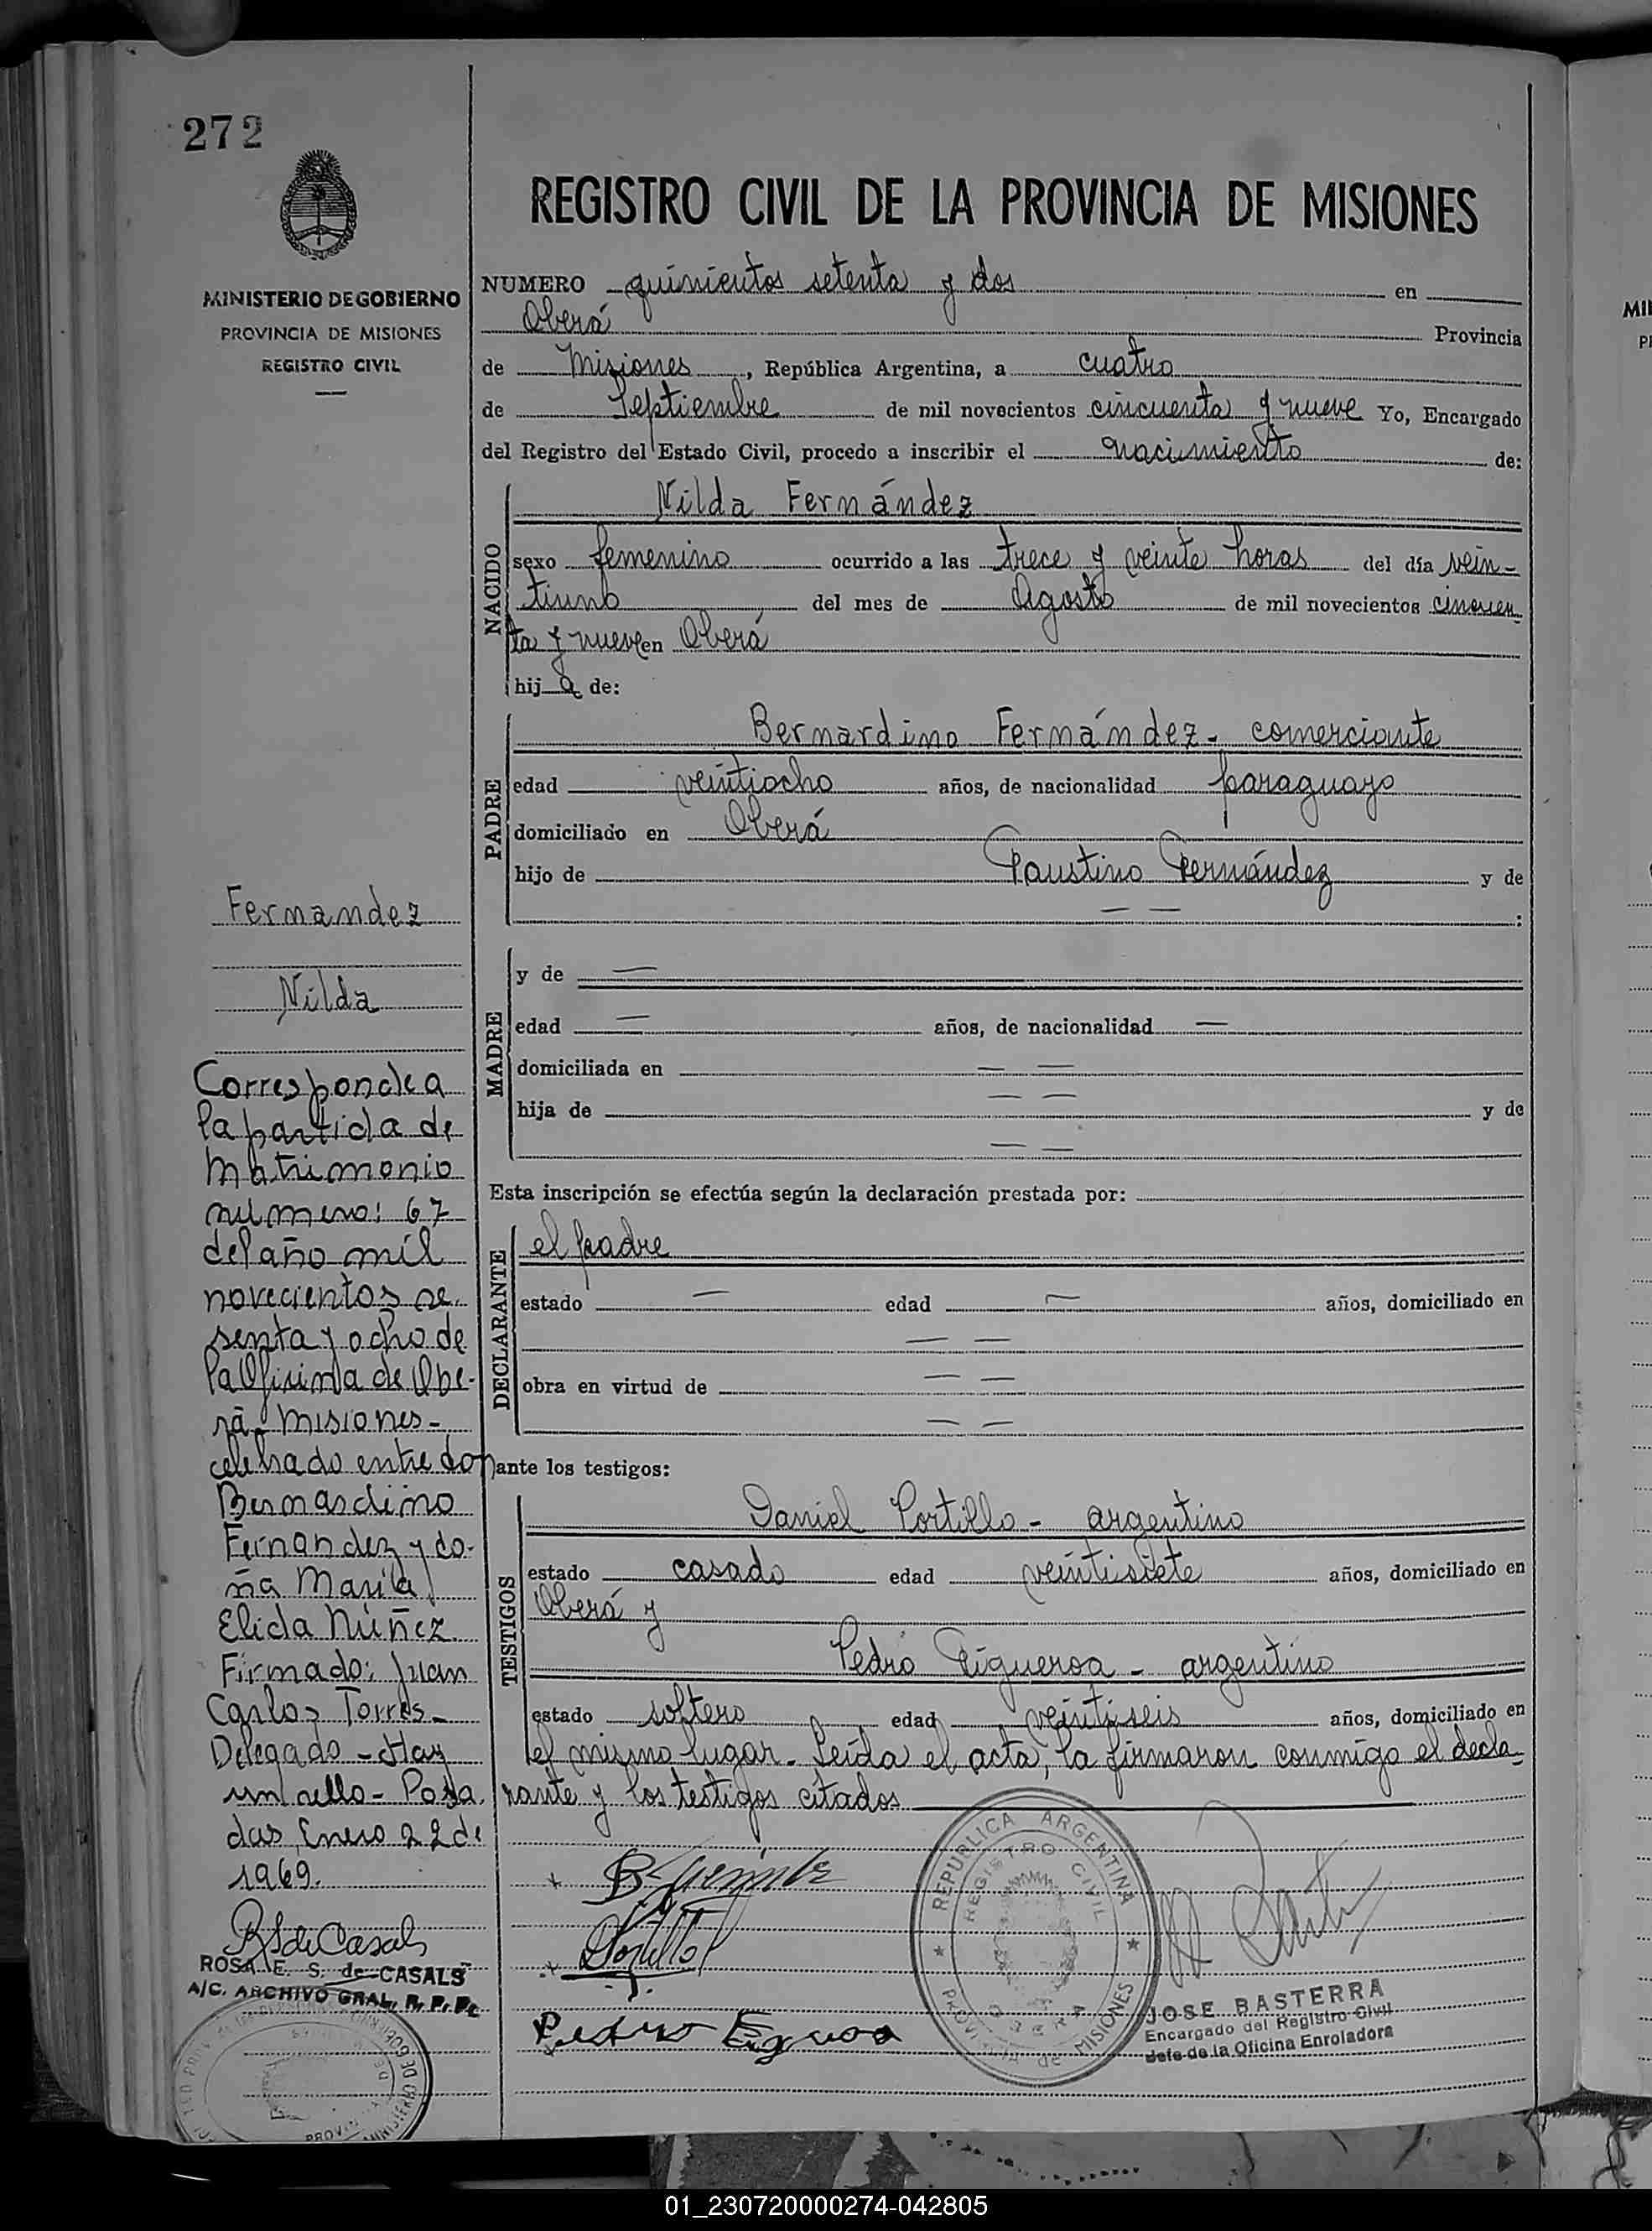 272
MINISTERIO DE GOBIERNO
PROVINCIA DE MISIONES
REGISTRO CIVIL
Fernandez
Nilda
Corresponde a
la partida de
Matrimonio
numero: 67
del año mil
novecientos se-
senta y ocho de
la Oficina de Obe-
rá - Misiones -
celebrado entre don
Bernardino
Fernandez y do-
ña Maria
Elida Núñez
Firmado: Juan
Carlos Torres -
Delegado - Hay
un sello - Posa
das, Enero 22 de
1969.
ROSA E. S. de CASALS
A/C. ARCHIVO GRAL. R. P. Pe
REGISTRO CIVIL DE LA PROVINCIA DE MISIONES
NUMERO quinientos setenta y dos en
Oberá Provincia
de Misiones, República Argentina, a cuatro
de Septiembre de mil novecientos cincuenta y nueve Yo, Encargado
del Registro del Estado Civil, procedo a inscribir el nacimiento de:
NACIDO
Nilda Fernández
sexo femenino ocurrido a las trece y veinte horas del día vein-
tiuno del mes de Agosto de mil novecientos cincuen
ta y nueve en Oberá
hij a de:
PADRE
Bernardino Fernández - comerciante
edad veintiocho años, de nacionalidad paraguayo
domiciliado en Oberá
hijo de Faustino Fernández y de
— — :
MADRE
y de —
edad — años, de nacionalidad —
domiciliada en — —
hija de — — y de
— —
Esta inscripción se efectúa según la declaración prestada por:
DECLARANTE
el padre
estado — edad — años, domiciliado en
— —
obra en virtud de — —
— —
ante los testigos:
TESTIGOS
Daniel Portillo - argentino
estado casado edad veintisiete años, domiciliado en
Oberá y
Pedro Figueroa - argentino
estado soltero edad veintiseis años, domiciliado en
el mismo lugar. Leída el acta, la firmaron conmigo el decla-
rante y los testigos citados
REPUBLICA ARGENTINA
REGISTRO CIVIL
OBERA
PROVINCIA de MISIONES
JOSE BASTERRA
Encargado del Registro Civil
Jefe de la Oficina Enroladora
01_230720000274-042805